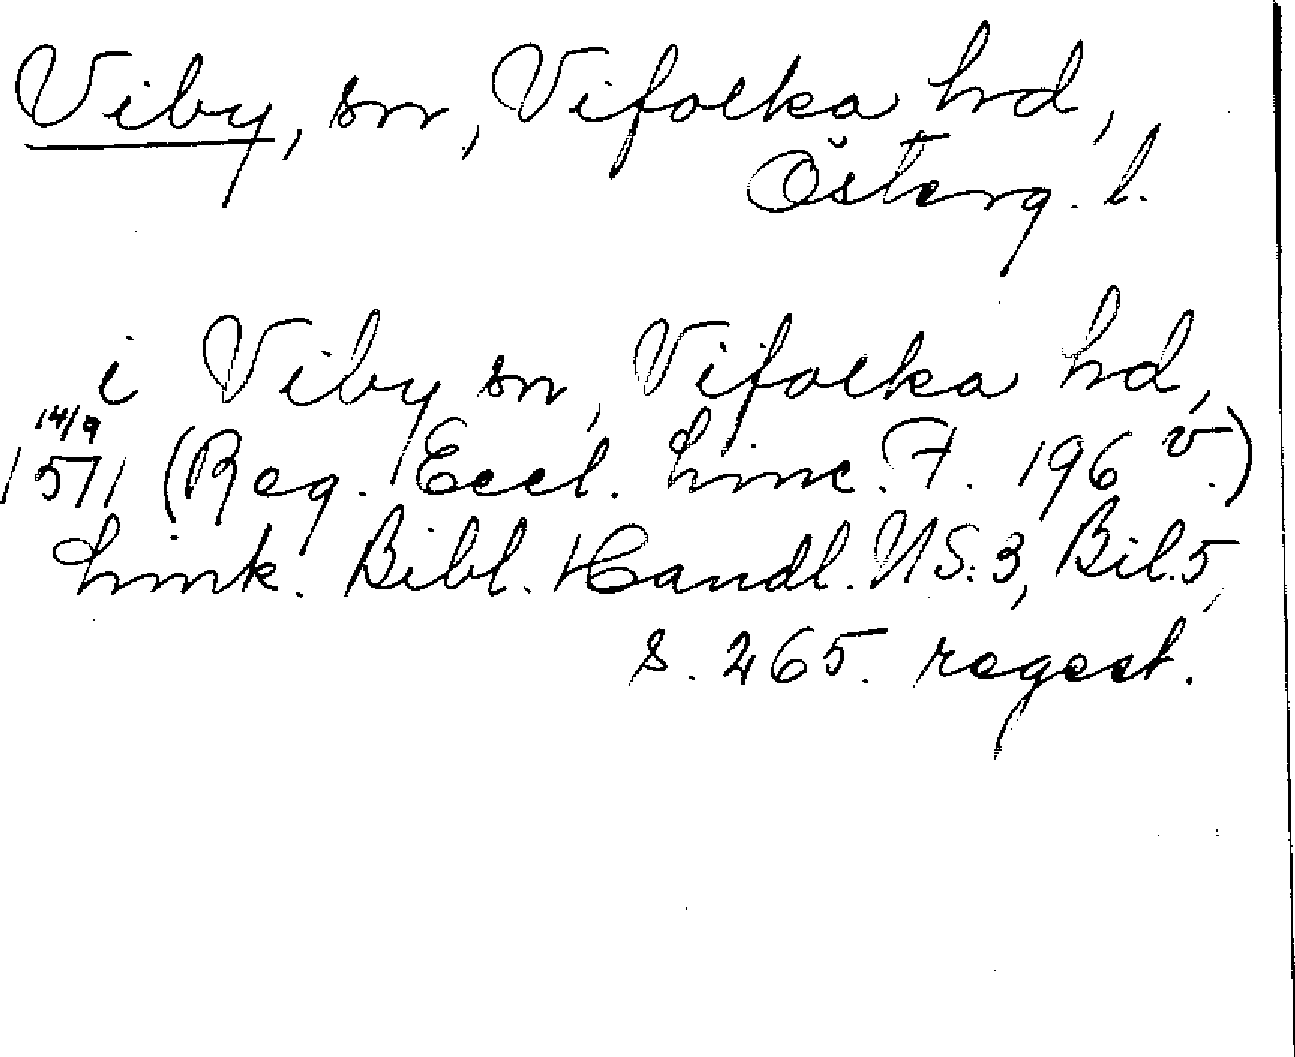 Viby, sn, Vifolka hd,
Österg. l.
i Viby sn, Vifolka hd,
14/9
1571 (Reg. Eccl. Linc. F. 196 v.)
Link. Bibl. Handl. NS: 3, Bil. 5,
s. 265. regest.